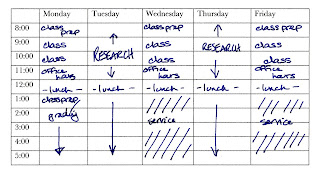 Monday Tuesday Wednesday Thursday Friday
8:00 class prep class prep class prep
9:00 class class class
RESEARCH RESEARCH
10:00 class class class
11:00 office hours office hours office hours
12:00 -lunch- -lunch- -lunch- -lunch- -lunch-
1:00 class prep
2:00 grading service service
3:00
4:00
5:00